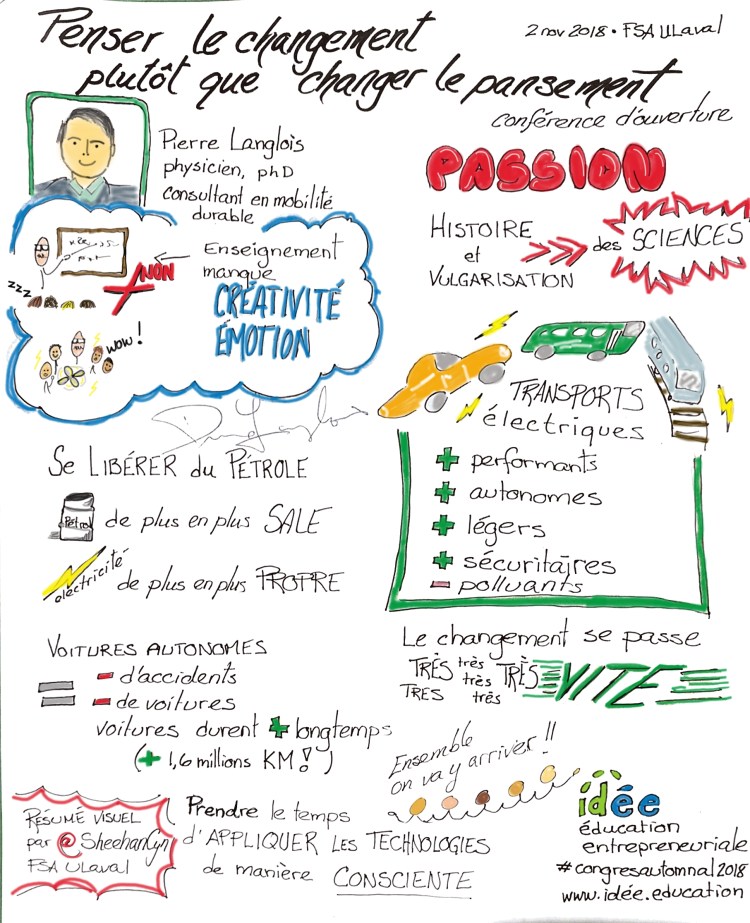 Penser le changement
plutôt que changer le pansement
2 nov 2018 • FSA ULaval
conférence d'ouverture
Pierre Langlois
physicien, phD
consultant en mobilité
durable
PASSION
HISTOIRE
et
VULGARISATION
des SCIENCES
zzz
NON
Enseignement
manque
CRÉATIVITÉ
ÉMOTION
WOW!
TRANSPORTS
électriques
+ performants
+ autonomes
+ légers
+ sécuritaires
- polluants
Se LIBÉRER du PÉTROLE
Pétrol
de plus en plus SALE
électricité
de plus en plus PROPRE
VOITURES AUTONOMES
= - d'accidents
= - de voitures
voitures durent + longtemps
(+ 1,6 millions KM!)
Le changement se passe
TRÈS très TRÈS VITE
TRES très
très
Ensemble
on va y arriver!!
RÉSUMÉ VISUEL
par @SheehanCyn
FSA ULaval
Prendre le temps
d'APPLIQUER LES TECHNOLOGIES
de manière CONSCIENTE
idée
éducation
entrepreneuriale
#congresautomnal2018
www.idée.education